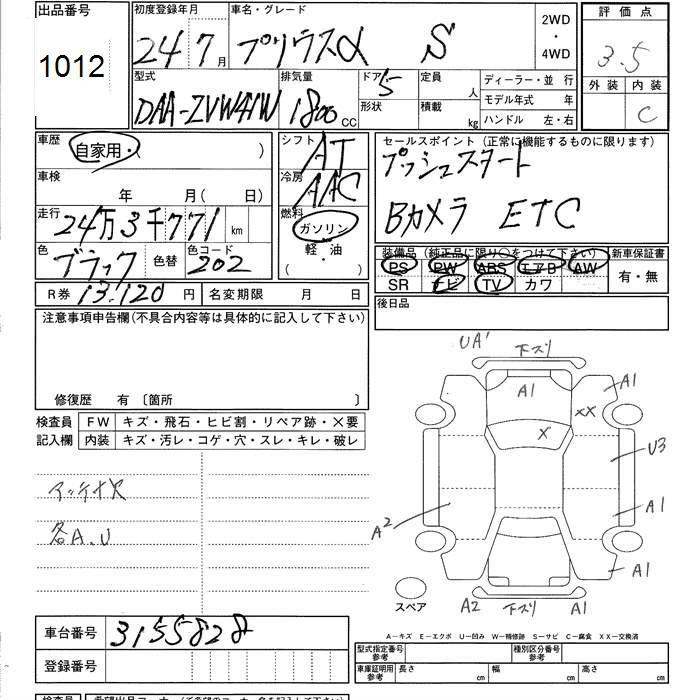 出品番号
1012
初度登録年月
24 7 月
車名・グレード
プリウスα S
2WD
・
4WD
評価点
3.5
外装 内装
C
型式
DAA-ZVW41W
排気量
1800 CC
ドア 5
形状
定員 人
積載 kg
ディーラー・並 行
モデル年式 年
ハンドル 左・右
車歴
自家用・( )
車検
年 月( 日)
走行
24万3千771 km
色
ブラック
色替
色コード
202
シフト
AT
冷房
AAC
燃料
ガソリン
軽・油
( ・ )
セールスポイント(正常に機能するものに限ります)
プッシュスタート
Bカメラ ETC
装備品(純正品に限り〇をつけて下さい)
PS PW ABS エアB AW
SR ナビ TV カワ
新車保証書
有・無
後日品
R券 13,120 円
名変期限 月 日
注意事項申告欄(不具合内容等は具体的に記入して下さい)
修復歴 有〔箇所 〕
検査員
記入欄
FW キズ・飛石・ヒビ割・リペア跡・×要
内装 キズ・汚レ・コゲ・穴・スレ・キレ・破レ
各A、U
UA' 下ズリ
A1 A1
XX
X
U3
A2 A1
A1
スペア
A2 下ズリ A1
A−キズ E−エクボ U−凹み W−補修跡 S−サビ C−腐食 XX−交換済
車台番号 3155828
登録番号
型式指定番号
参考
種別区分番号
参考
車庫証明用
参考
長さ cm 幅 cm 高さ cm